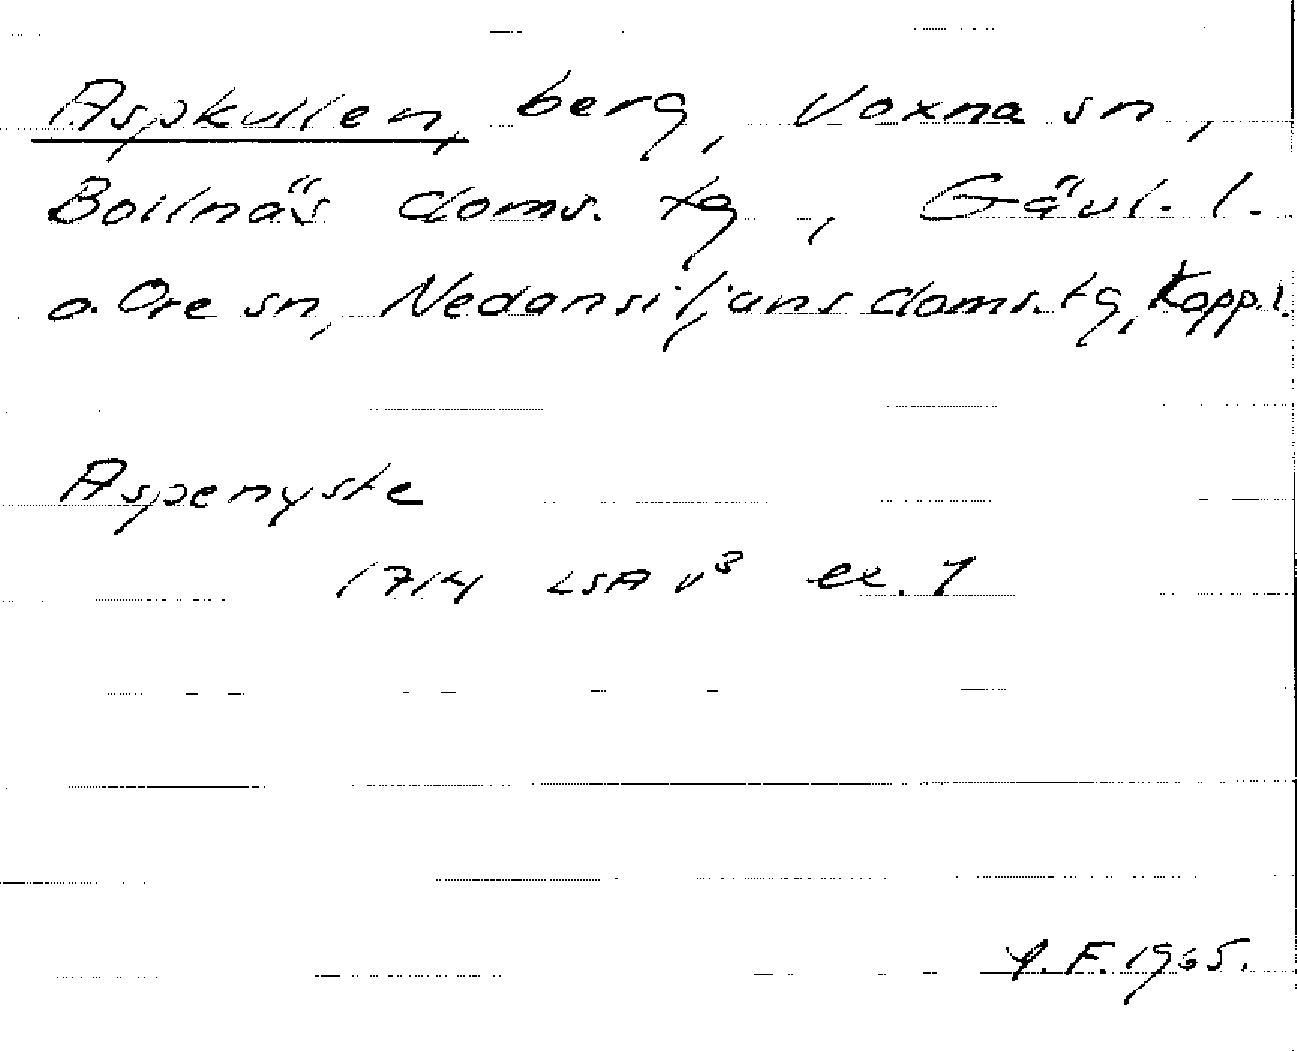 Aspkullen, berg, Voxna sn,
Bollnäs doms. tg, Gävl. l.
o. Ore sn, Nedansiljans doms.tg, Kopp.l.
Aspenyste
1714 LSA V³ ex. 1
Y.F. 1965.